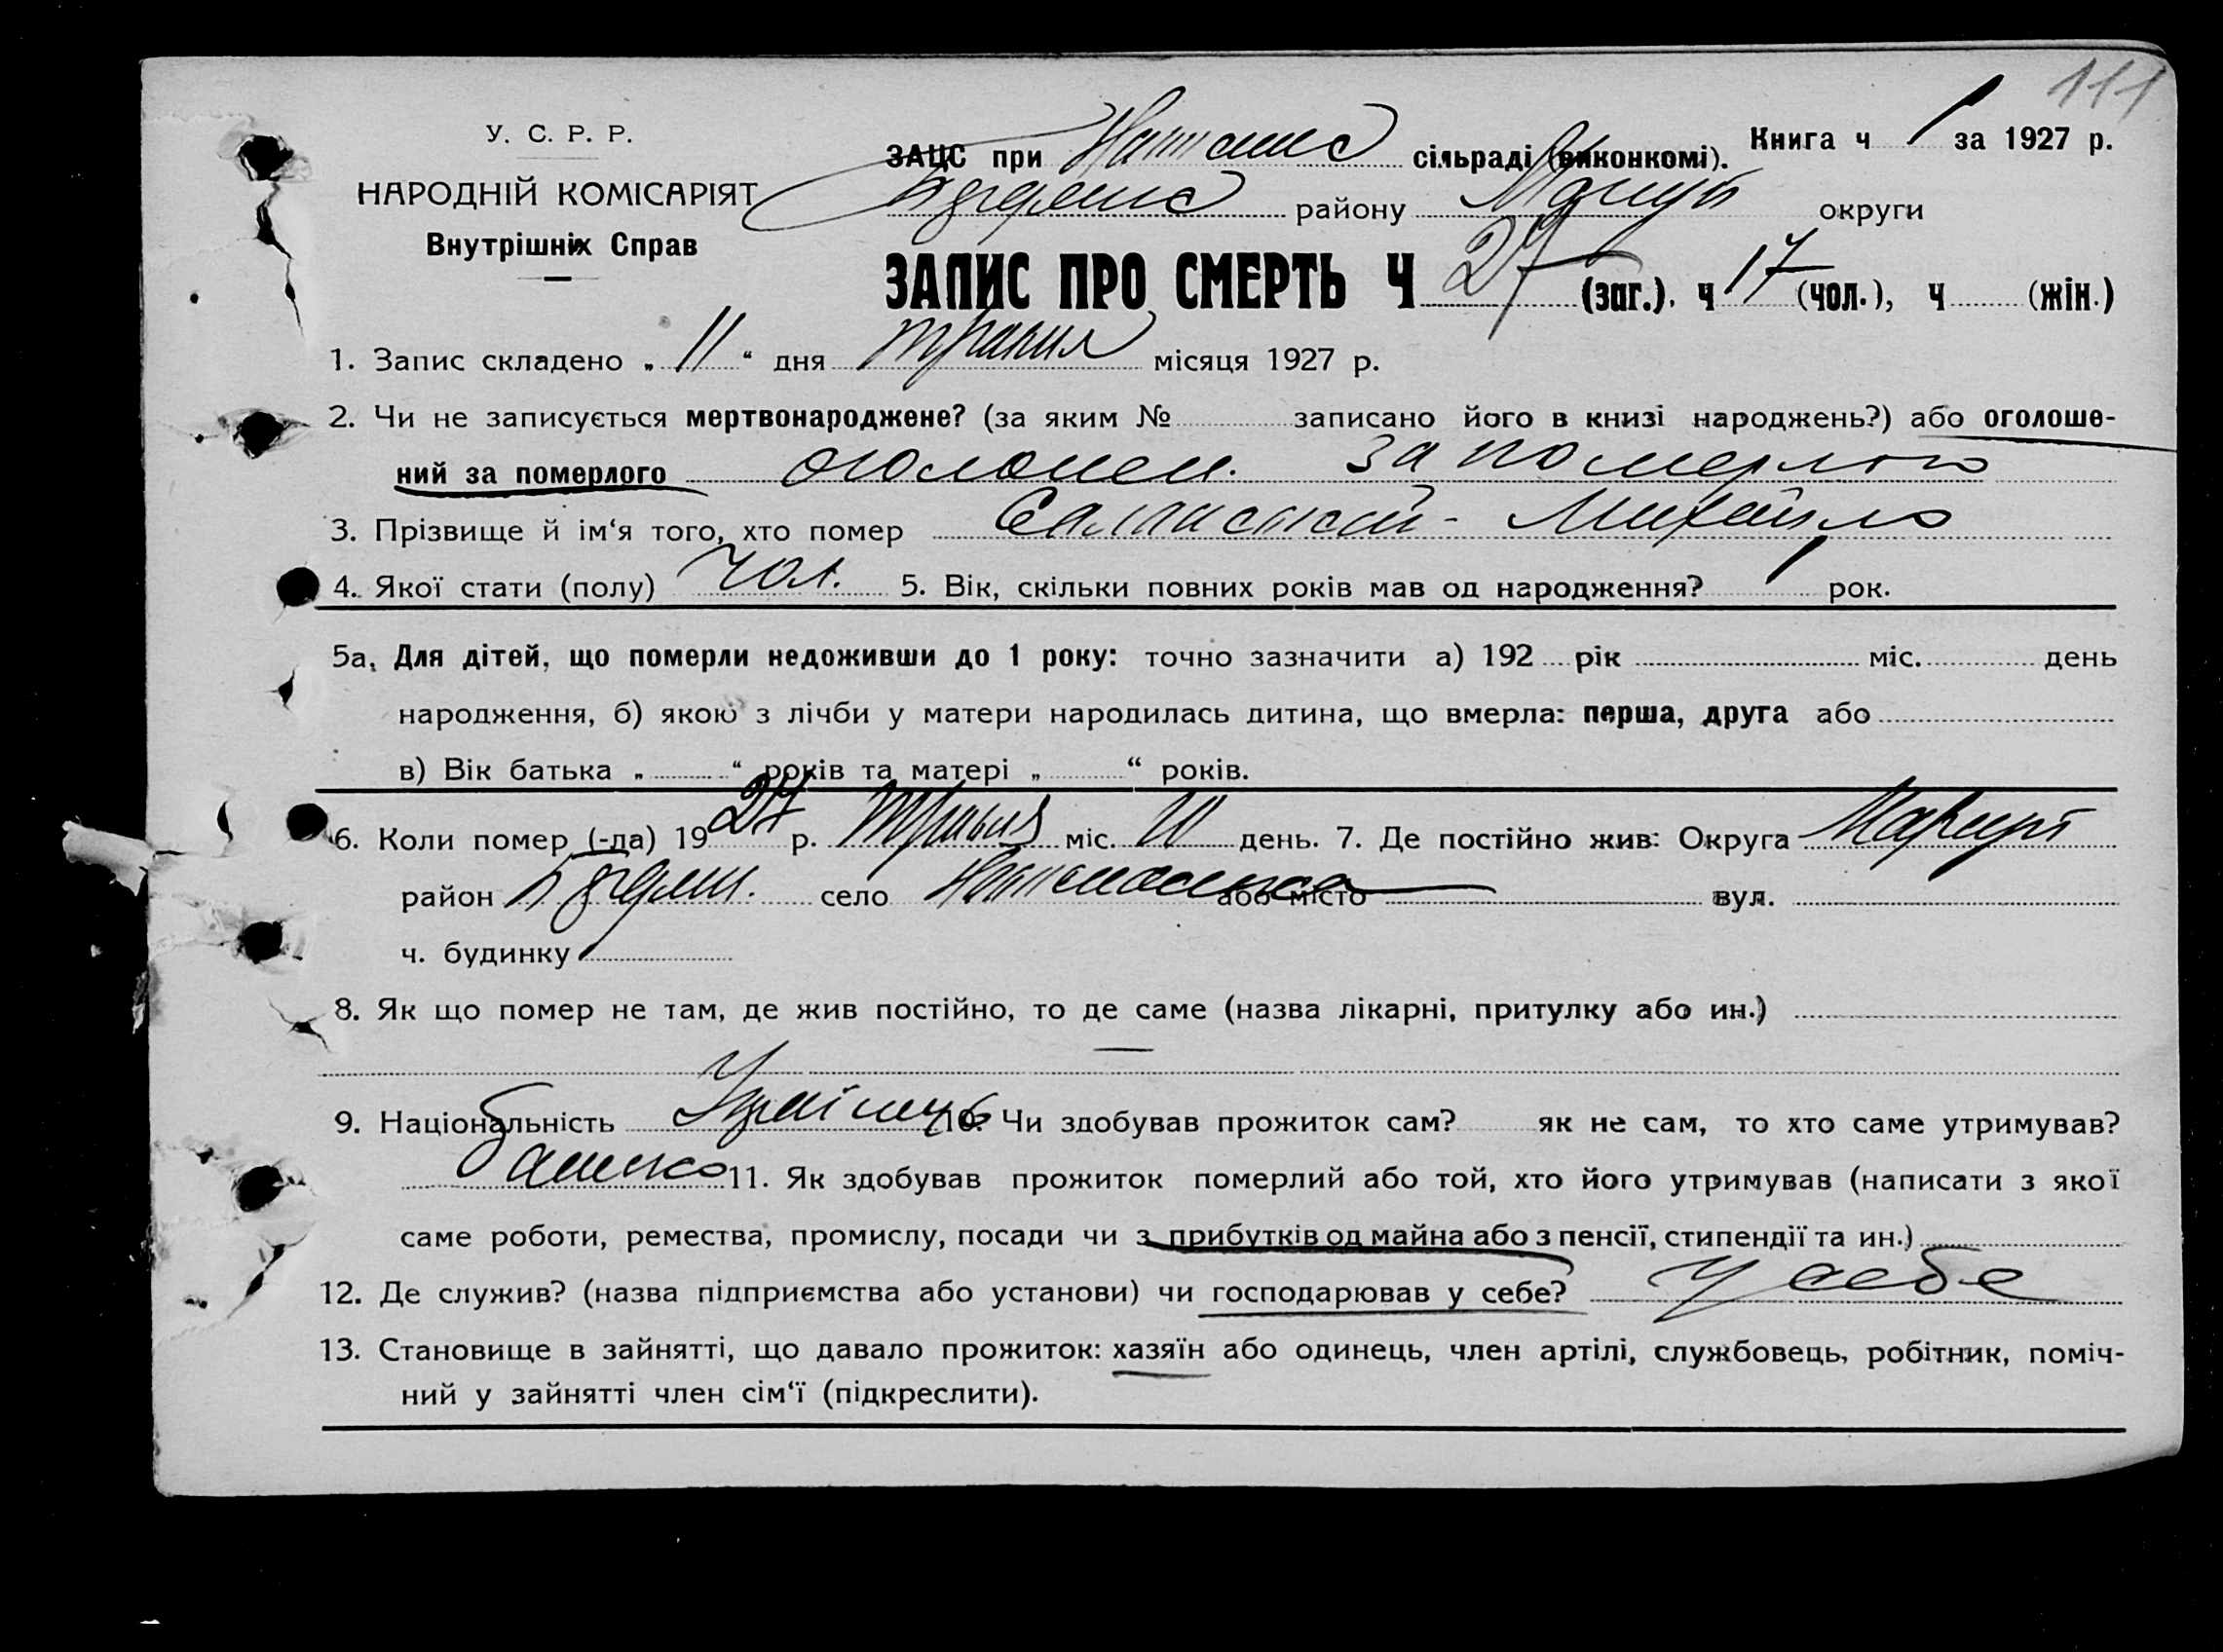 111
У. С. Р. Р.
НАРОДНІЙ КОМІСАРІЯТ
Внутрішніх Справ
ЗАЦС при сільраді (виконкомі). Книга ч 1 за 1927 р.
району округи
ЗАПИС ПРО СМЕРТЬ Ч 27 (заг.). ч 17 (чол.), ч (жін.)
1. Запис складено „ 11 “ дня травня місяця 1927 р.
2. Чи не записується мертвонароджене? (за яким № записано його в книзі народжень?) або оголоше-
ний за померлого оголошен. за померлого
3. Прізвище й ім‘я того, хто помер Михайло
4. Якої стати (полу) чол. 5. Вік, скільки повних років мав од народження? 1 рок.
5а. Для дітей, що померли недоживши до 1 року: точно зазначити а) 192 рік міс. день
народження, б) якою з лічби у матери народилась дитина, що вмерла: перша, друга або
в) Вік батька „ “ років та матері „ “ років.
6. Коли помер (-ла) 1927 р. травня міс. день. 7. Де постійно жив: Округа
район село або місто вул.
ч. будинку
8. Як що помер не там, де жив постійно, то де саме (назва лікарні, притулку або ин.)
—
9. Національність Українець 10. Чи здобував прожиток сам? як не сам, то хто саме утримував?
батько 11. Як здобував прожиток померлий або той, хто його утримував (написати з якої
саме роботи, ремества, промислу, посади чи з прибутків од майна або з пенсії, стипендії та ин.)
12. Де служив? (назва підприємства або установи) чи господарював у себе? у себе
13. Становище в зайнятті, що давало прожиток: хазяїн або одинець, член артілі, службовець, робітник, поміч-
ний у зайнятті член сім‘ї (підкреслити).